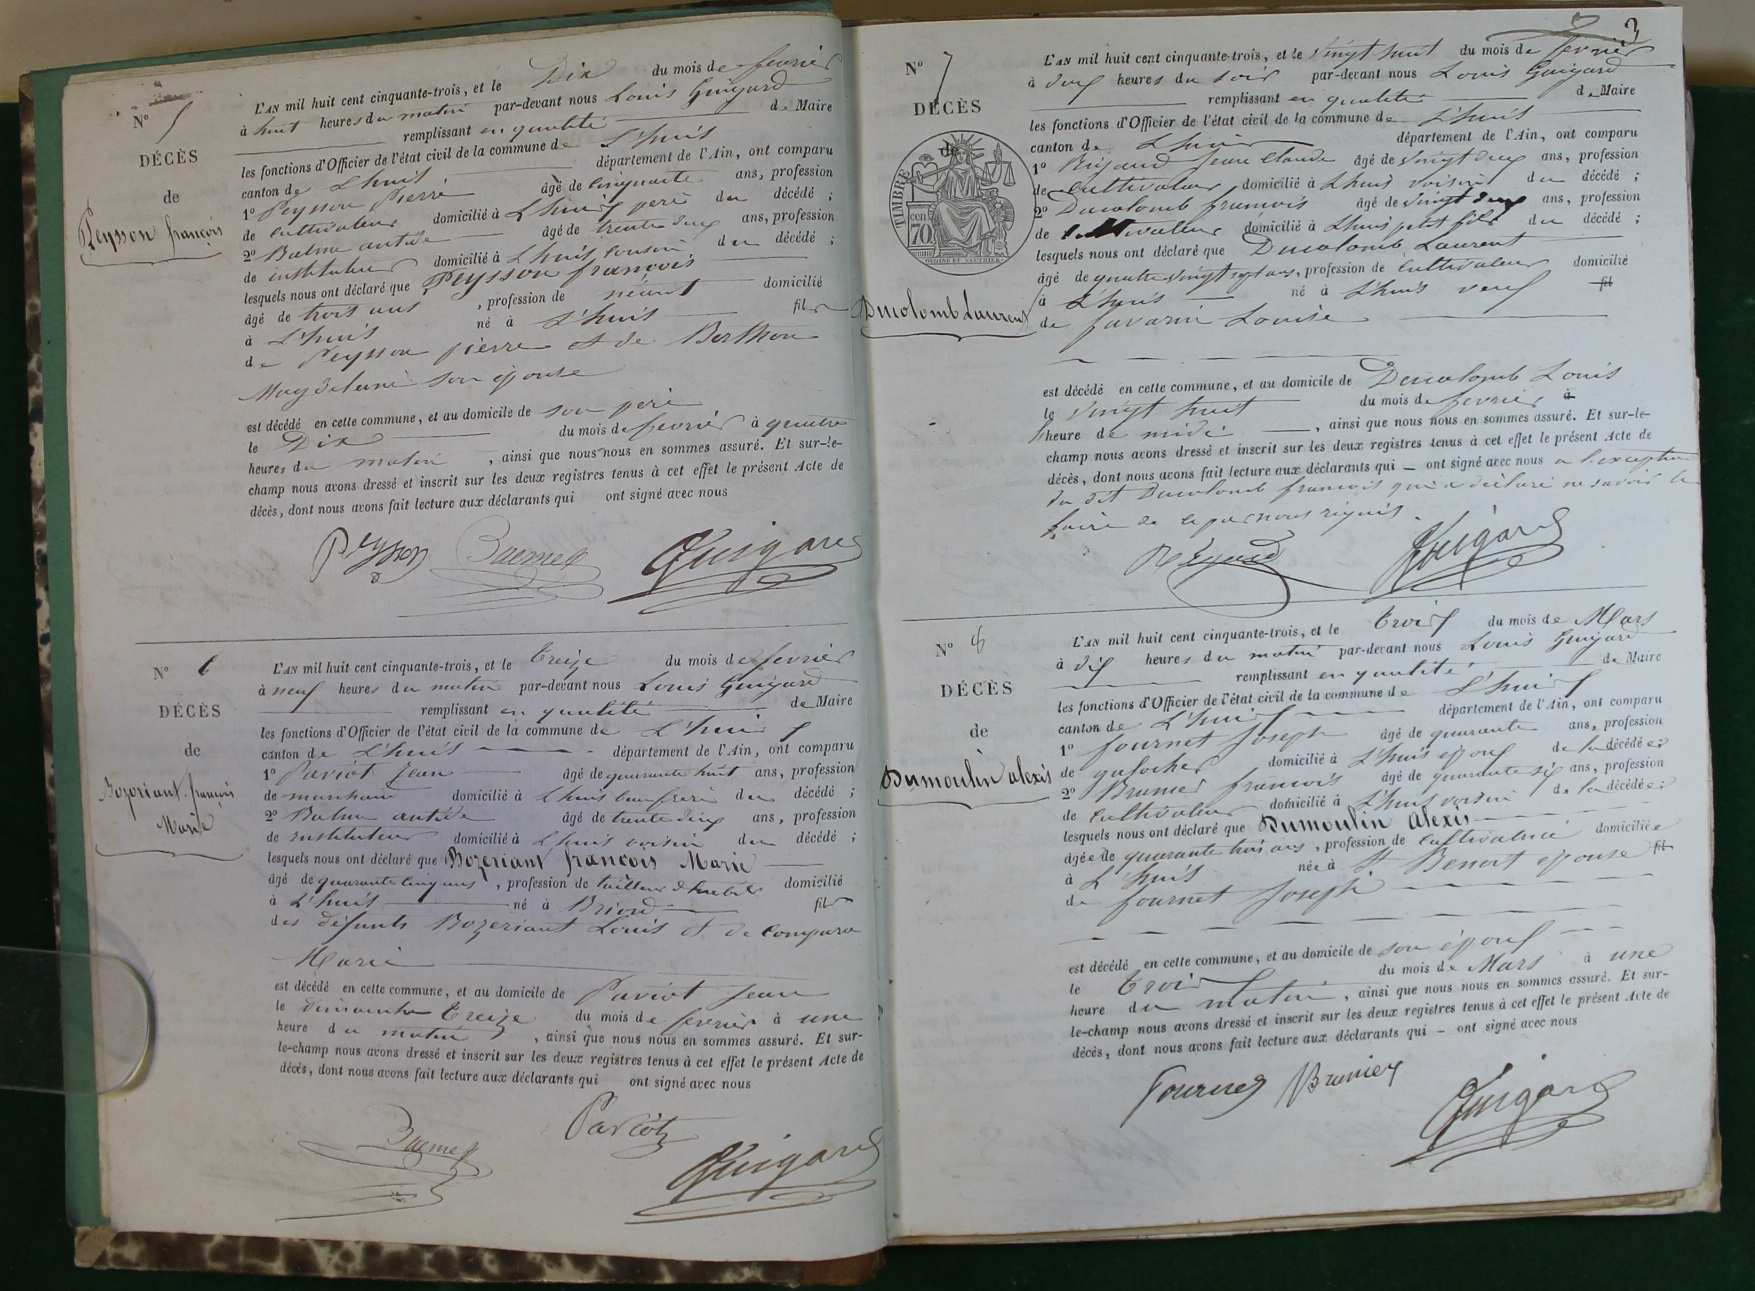 N° 5
DÉCÈS
de
Peysson françois
L'AN mil huit cent cinquante-trois, et le Dix du mois de fevrier
à huit heures du matin par-devant nous Louis Guigard
remplissant en qualité de Maire
les fonctions d'Officier de l'état civil de la commune de L'huis
canton de L'huis département de l'Ain, ont comparu
1° Peysson Pierre âgé de Cinquante ans, profession
de Cultivateur domicilié à L'huis père du décédé ;
2° Balme antide âgé de trente deux ans, profession
de instituteur domicilié à L'huis cousin du décédé ;
lesquels nous ont déclaré que Peysson françois
âgé de trois ans , profession de néant domicilié
à L'huis né à L'huis fils
de Peysson pierre et de Berthon
Magdeleine son épouse
est décédé en cette commune, et au domicile de son père
le Dix du mois de fevrier à quatre
heures du matin , ainsi que nous nous en sommes assuré. Et sur-le-
champ nous avons dressé et inscrit sur les deux registres tenus à cet effet le présent Acte de
décès, dont nous avons fait lecture aux déclarants qui ont signé avec nous
Peysson Guigard
N° 6
DÉCÈS
de
Bozeriant françois
Marie
L'AN mil huit cent cinquante-trois, et le treize du mois de fevrier
à neuf heures du matin par-devant nous Louis Guigard
remplissant en qualité de Maire
les fonctions d'Officier de l'état civil de la commune de L'huis
canton de L'huis département de l'Ain, ont comparu
1° Paviot Jean âgé de quarante huit ans, profession
de marchand domicilié à L'huis beau frère du décédé ;
2° Balme antide âgé de trente deux ans, profession
de instituteur domicilié à L'huis voisin du décédé ;
lesquels nous ont déclaré que Bozeriant françois Marie
âgé de quarante cinq ans , profession de tailleur d'habits domicilié
à L'huis né à Briord fils
des défunts Bozeriant Louis et de Compara
Marie
est décédé en cette commune, et au domicile de Paviot Jean
le dimanche treize du mois de fevrier à une
heure du matin , ainsi que nous nous en sommes assuré. Et sur-
le-champ nous avons dressé et inscrit sur les deux registres tenus à cet effet le présent Acte de
décès, dont nous avons fait lecture aux déclarants qui ont signé avec nous
Paviot Guigard
3
N° 7
DÉCÈS
de
TIMBRE
70 cen
Ducolomb Laurent
L'AN mil huit cent cinquante-trois, et le vingt huit du mois de fevrier
à deux heures du soir par-devant nous Louis Guigard
remplissant en qualité de Maire
les fonctions d'Officier de l'état civil de la commune de L'huis
canton de L'huis département de l'Ain, ont comparu
1° Rigaud Jean Claude âgé de vingt deux ans, profession
de Cultivateur domicilié à L'huis voisin du décédé ;
2° Ducolomb francois âgé de vingt deux ans, profession
de Cultivateur domicilié à L'huis petit fils du décédé ;
lesquels nous ont déclaré que Ducolomb Laurent
âgé de quatre vingt sept ans, profession de Cultivateur domicilié
à L'huis né à L'huis veuf fil
de favarin Louise
est décédé en cette commune, et au domicile de Ducolomb Louis
le vingt huit du mois de fevrier à
l'heure de midi , ainsi que nous nous en sommes assuré. Et sur-le-
champ nous avons dressé et inscrit sur les deux registres tenus à cet effet le présent Acte de
décès, dont nous avons fait lecture aux déclarants qui ont signé avec nous a l'exception
du dit Ducolomb francois qui a déclaré ne savoir le
faire de ce par nous requis.
Guigard
N° 8
DÉCÈS
de
Dumoulin alexis
L'AN mil huit cent cinquante-trois, et le trois du mois de Mars
à dix heures du matin par-devant nous Louis Guigard
remplissant en qualité de Maire
les fonctions d'Officier de l'état civil de la commune de L'huis
canton de L'huis département de l'Ain, ont comparu
1° fournet Joseph âgé de quarante ans, profession
de galocher domicilié à L'huis époux de la décédée ;
2° Brunier francois âgé de quarante six ans, profession
de Cultivateur domicilié à L'huis voisin de la décédée ;
lesquels nous ont déclaré que Dumoulin alexis
âgée de quarante trois ans , profession de Cultivatrice domiciliée
à L'huis née à St Benoit épouse fil
de fournet Joseph
est décédé en cette commune, et au domicile de son époux
le trois du mois de Mars à une
heure du matin , ainsi que nous nous en sommes assuré. Et sur-
le-champ nous avons dressé et inscrit sur les deux registres tenus à cet effet le présent Acte de
décès, dont nous avons fait lecture aux déclarants qui ont signé avec nous
Brunier Guigard